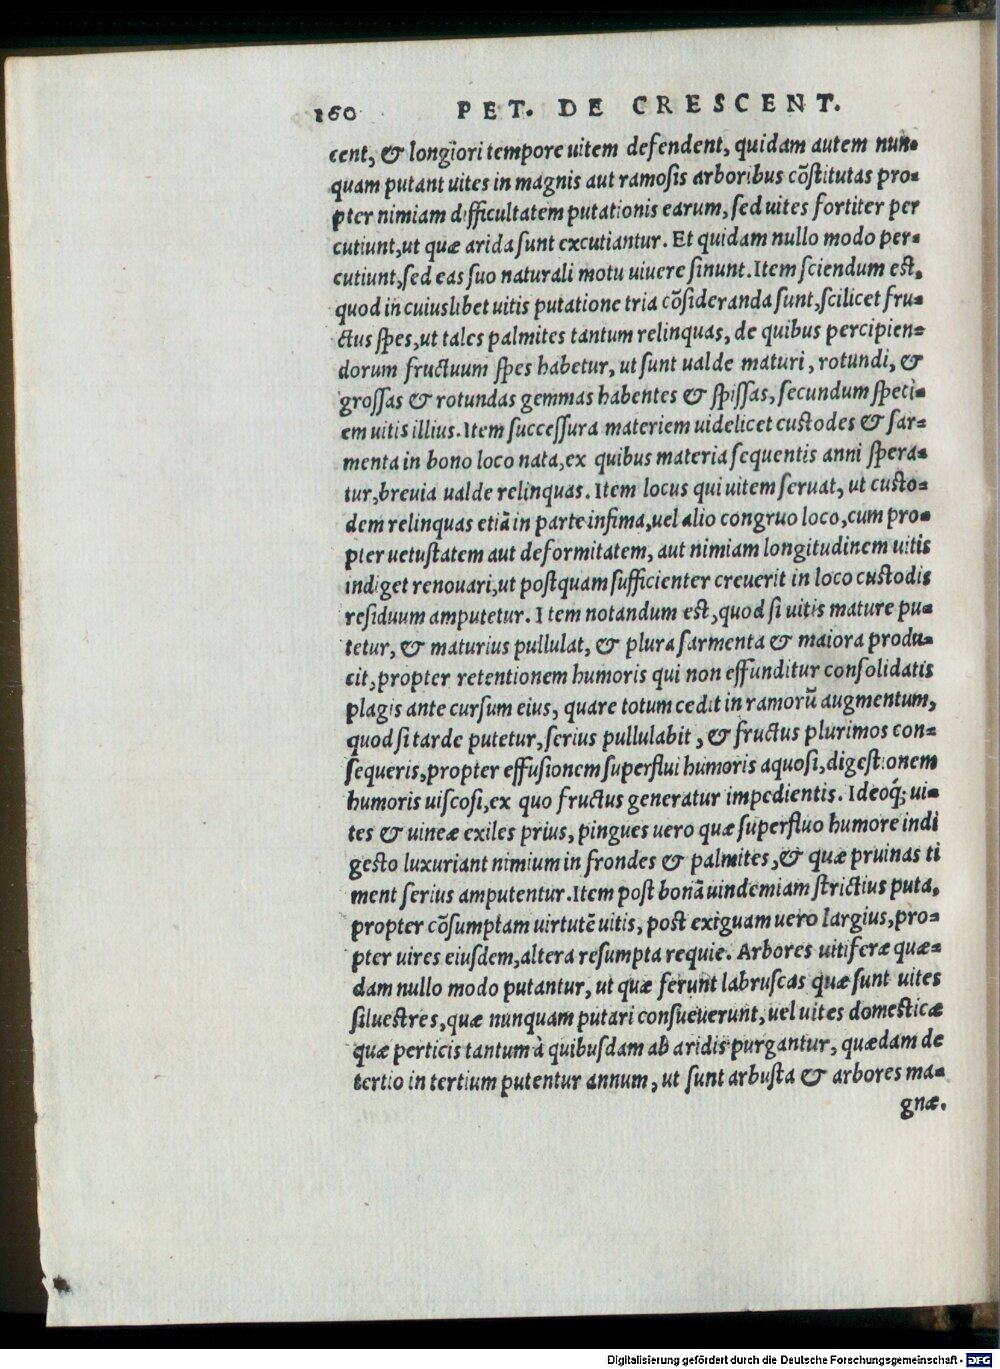 160 PET. DE CRESCENT.
cent, & longiori tempore uitem defendent, quidam autem nun-
quam putant uites in magnis aut ramosis arboribus cōstitutas pro-
pter nimiam difficultatem putationis earum, sed uites fortiter per
cutiunt, ut quæ arida sunt excutiantur. Et quidam nullo modo per-
cutiunt, sed eas suo naturali motu uiuere sinunt. Item sciendum est,
quod in cuiuslibet uitis putatione tria cōsideranda sunt, scilicet fru-
ctus spes, ut tales palmites tantum relinquas, de quibus percipien-
dorum fructuum spes habetur, ut sunt ualde maturi, rotundi, &
grossas & rotundas gemmas habentes & spissas, secundum speci-
em uitis illius. Item successura materiem uidelicet custodes & sar-
menta in bono loco nata, ex quibus materia sequentis anni spera-
tur, breuia ualde relinquas. Item locus qui uitem seruat, ut custo-
dem relinquas etiā in parte infima, uel alio congruo loco, cum pro-
pter uetustatem aut deformitatem, aut nimiam longitudinem uitis
indiget renouari, ut postquam sufficienter creuerit in loco custodis
residuum amputetur. Item notandum est, quod si uitis mature pu-
tetur, & maturius pullulat, & plura sarmenta & maiora produ-
cit, propter retentionem humoris qui non effunditur consolidatis
plagis ante cursum eius, quare totum cedit in ramorū augmentum,
quod si tarde putetur, serius pullulabit, & fructus plurimos con-
sequeris, propter effusionem superflui humoris aquosi, digestionem
humoris uiscosi, ex quo fructus generatur impedientis. Ideoq́; ui-
tes & uineæ exiles prius, pingues uero quæ superfluo humore indi
gesto luxuriant nimium in frondes & palmites, & quæ pruinas ti
ment serius amputentur. Item post bonā uindemiam strictius puta,
propter cōsumptam uirtutē uitis, post exiguam uero largius, pro-
pter uires eiusdem, altera resumpta requie. Arbores uitiferæ quæ-
dam nullo modo putantur, ut quæ ferunt labruscas quæ sunt uites
siluestres, quæ nunquam putari consueuerunt, uel uites domesticæ
quæ perticis tantum à quibusdam ab aridis purgantur, quædam de
tertio in tertium putentur annum, ut sunt arbusta & arbores ma-
gnæ.
Digitalisierung gefördert durch die Deutsche Forschungsgemeinschaft - DFG